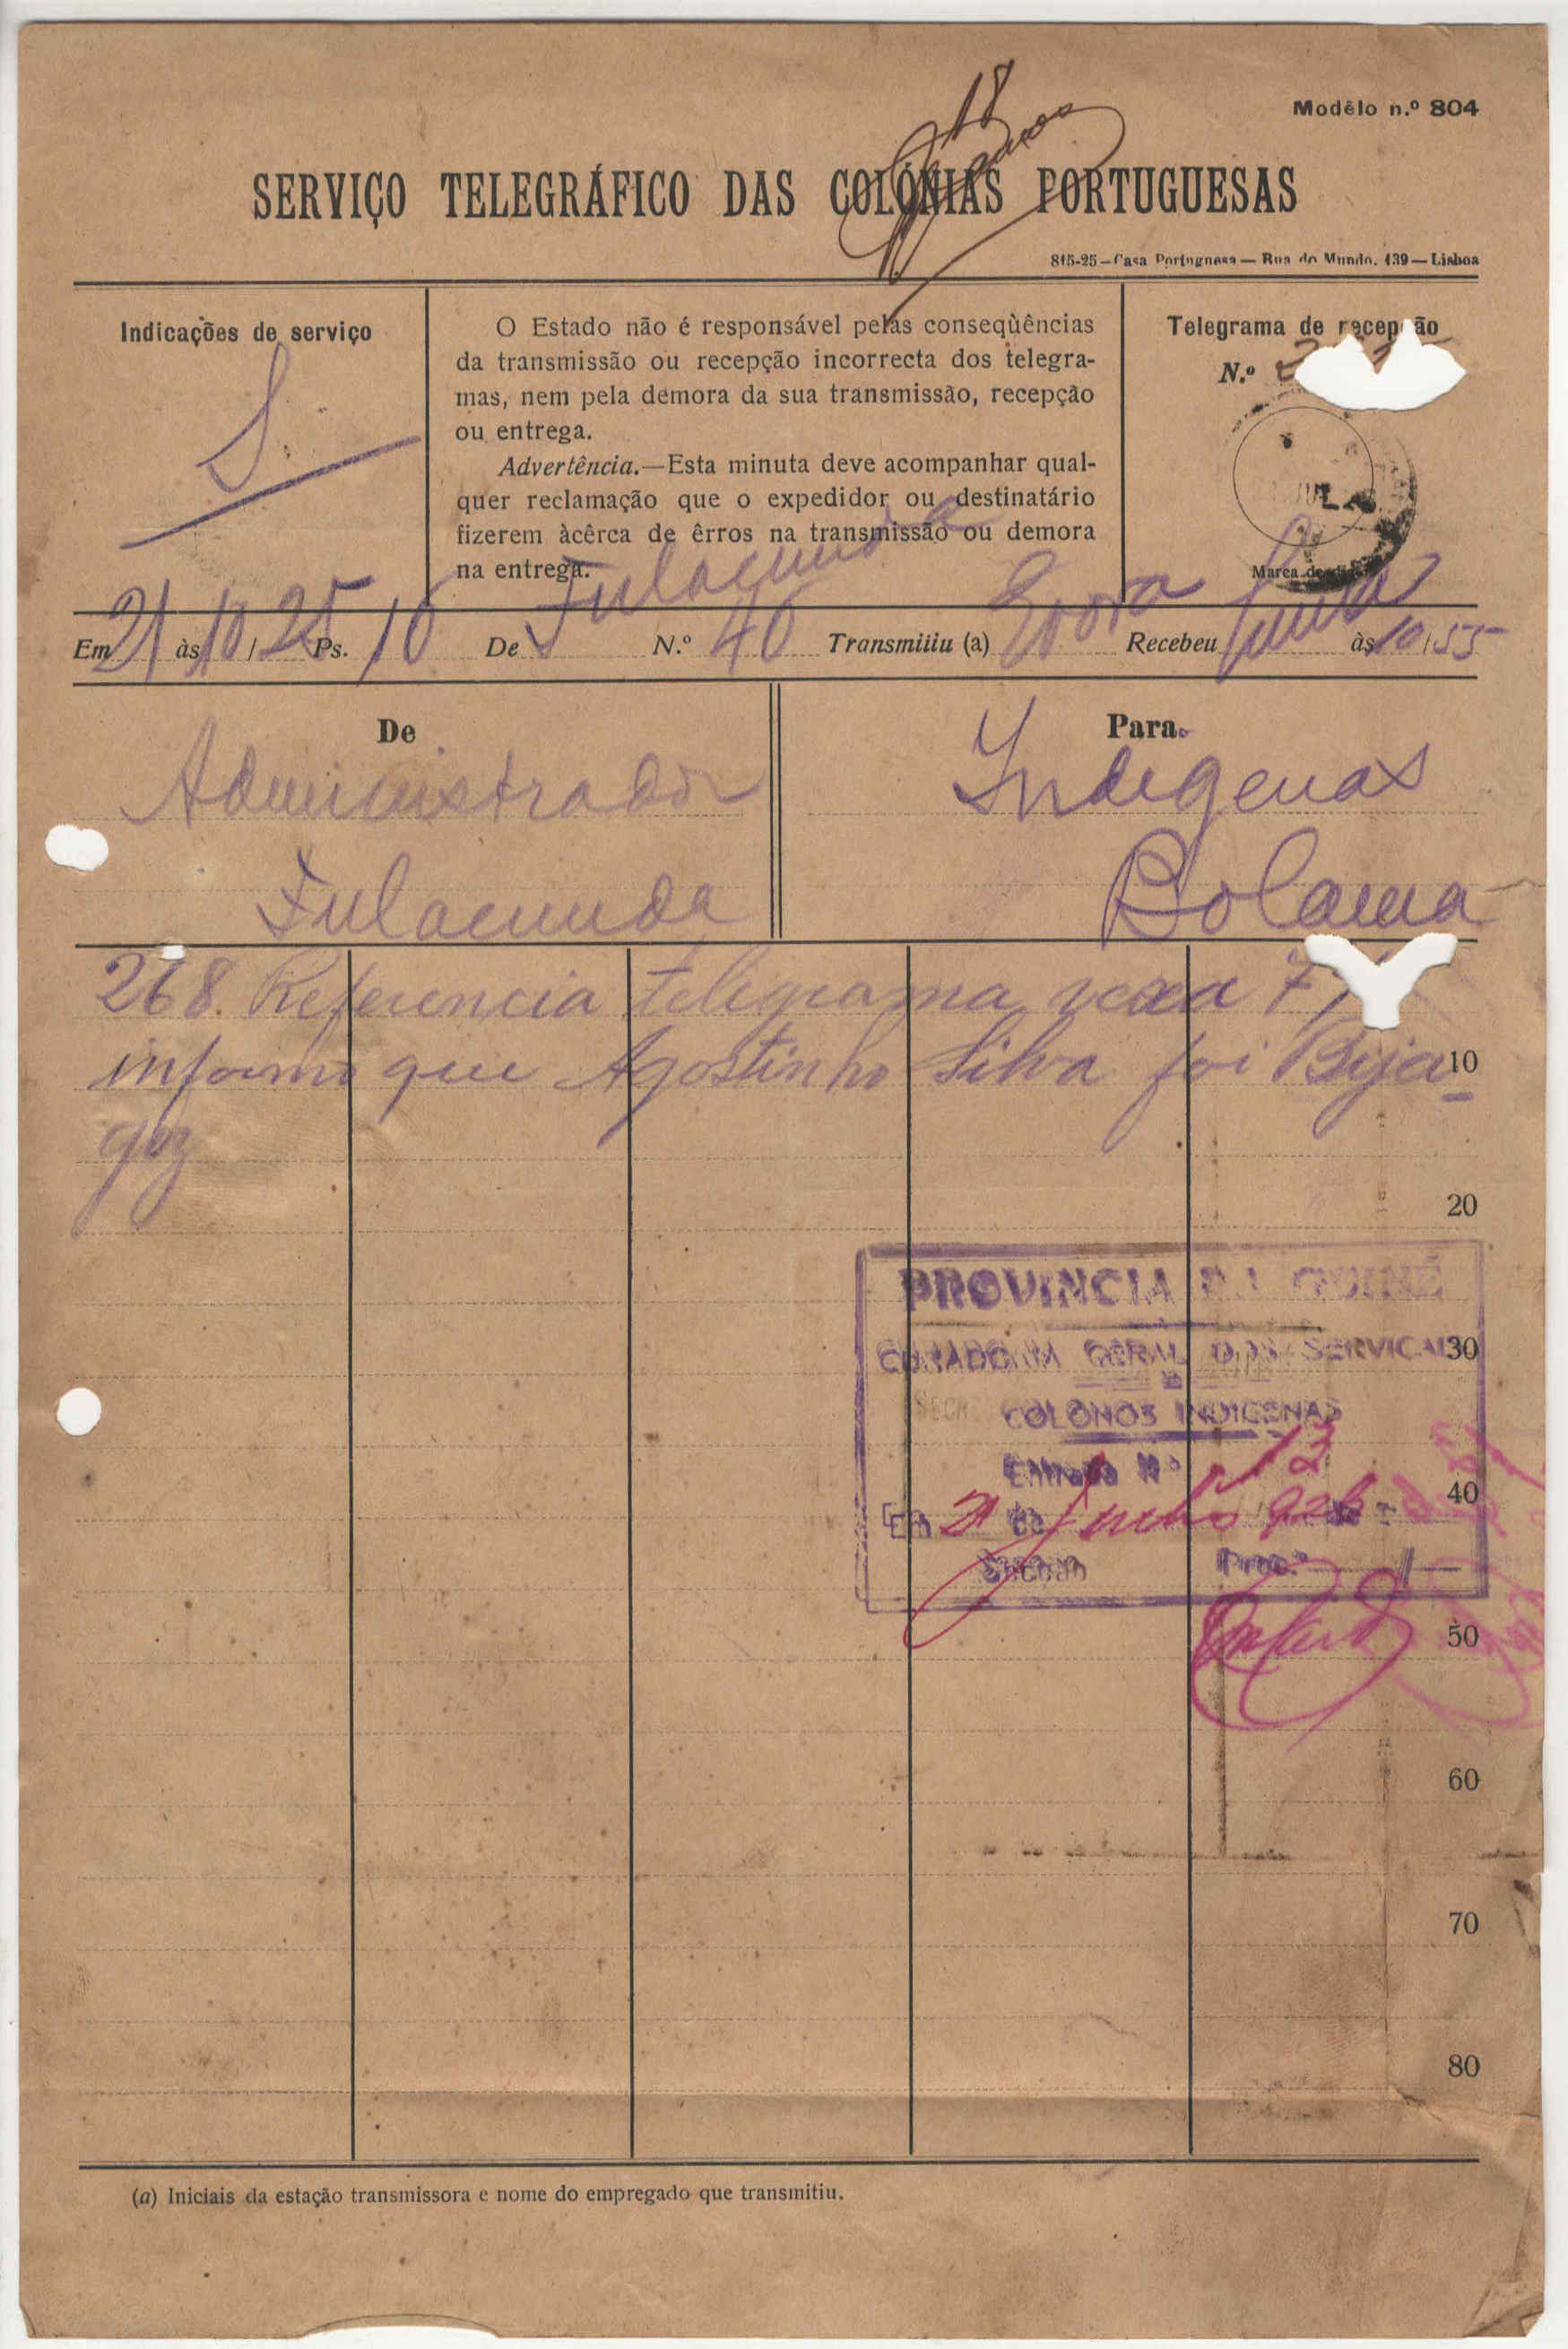 18
Modêlo n.º 804
SERVIÇO TELEGRÁFICO DAS COLÓNIAS PORTUGUESAS
815-25 — Casa Portuguesa — Rua do Mundo, 139 — Lisboa
Indicações de serviço
S.
O Estado não é responsável pelas conseqùências
da transmissão ou recepção incorrecta dos telegra-
mas, nem pela demora da sua transmissão, recepção
ou entrega.
Advertência.—Esta minuta deve acompanhar qual-
quer reclamação que o expedidor ou destinatário
fizerem àcêrca de êrros na transmissão ou demora
na entrega.
Telegrama de recepção
N.º
Marca do dia
Em 21 às 10 / 25 Ps. 16 De Fulacunda N.º 40 Transmitiu (a) Recebeu às 10/55
De
Administrador
Fulacunda
Para
Indigenas
Bolama
268. Referencia telegrama vexa 7
informo que Agostinho Silva foi Bija
goz
10
20
30
40
50
60
70
80
PROVINCIA DA GUINÉ
CURADORIA GERAL DOS SERVIÇAIS
E
COLONOS INDIGENAS
Entrada N.º 13
Em 21 de Junho 926
Secção Proc.º
(a) Iniciais da estação transmissora e nome do empregado que transmitiu.